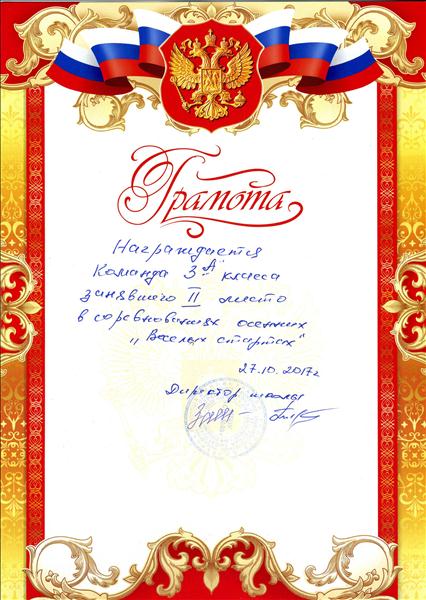 Грамота
Награждается
Команда 3 "А" класса
занявшего II место
в соревнованиях осенних
„Веселых стартах"
27.10.2017г
Директор школы